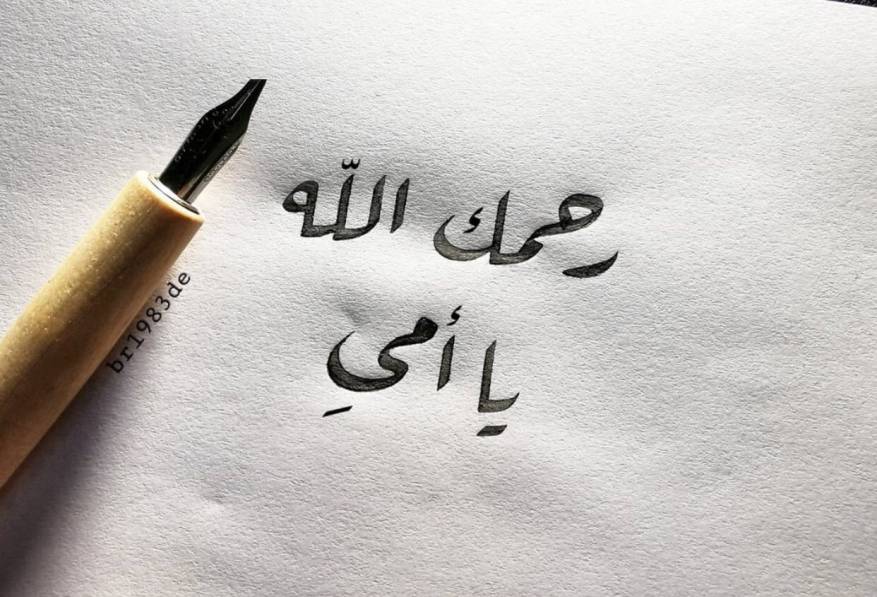 رحمك اللّه
يا أمي
br1983de